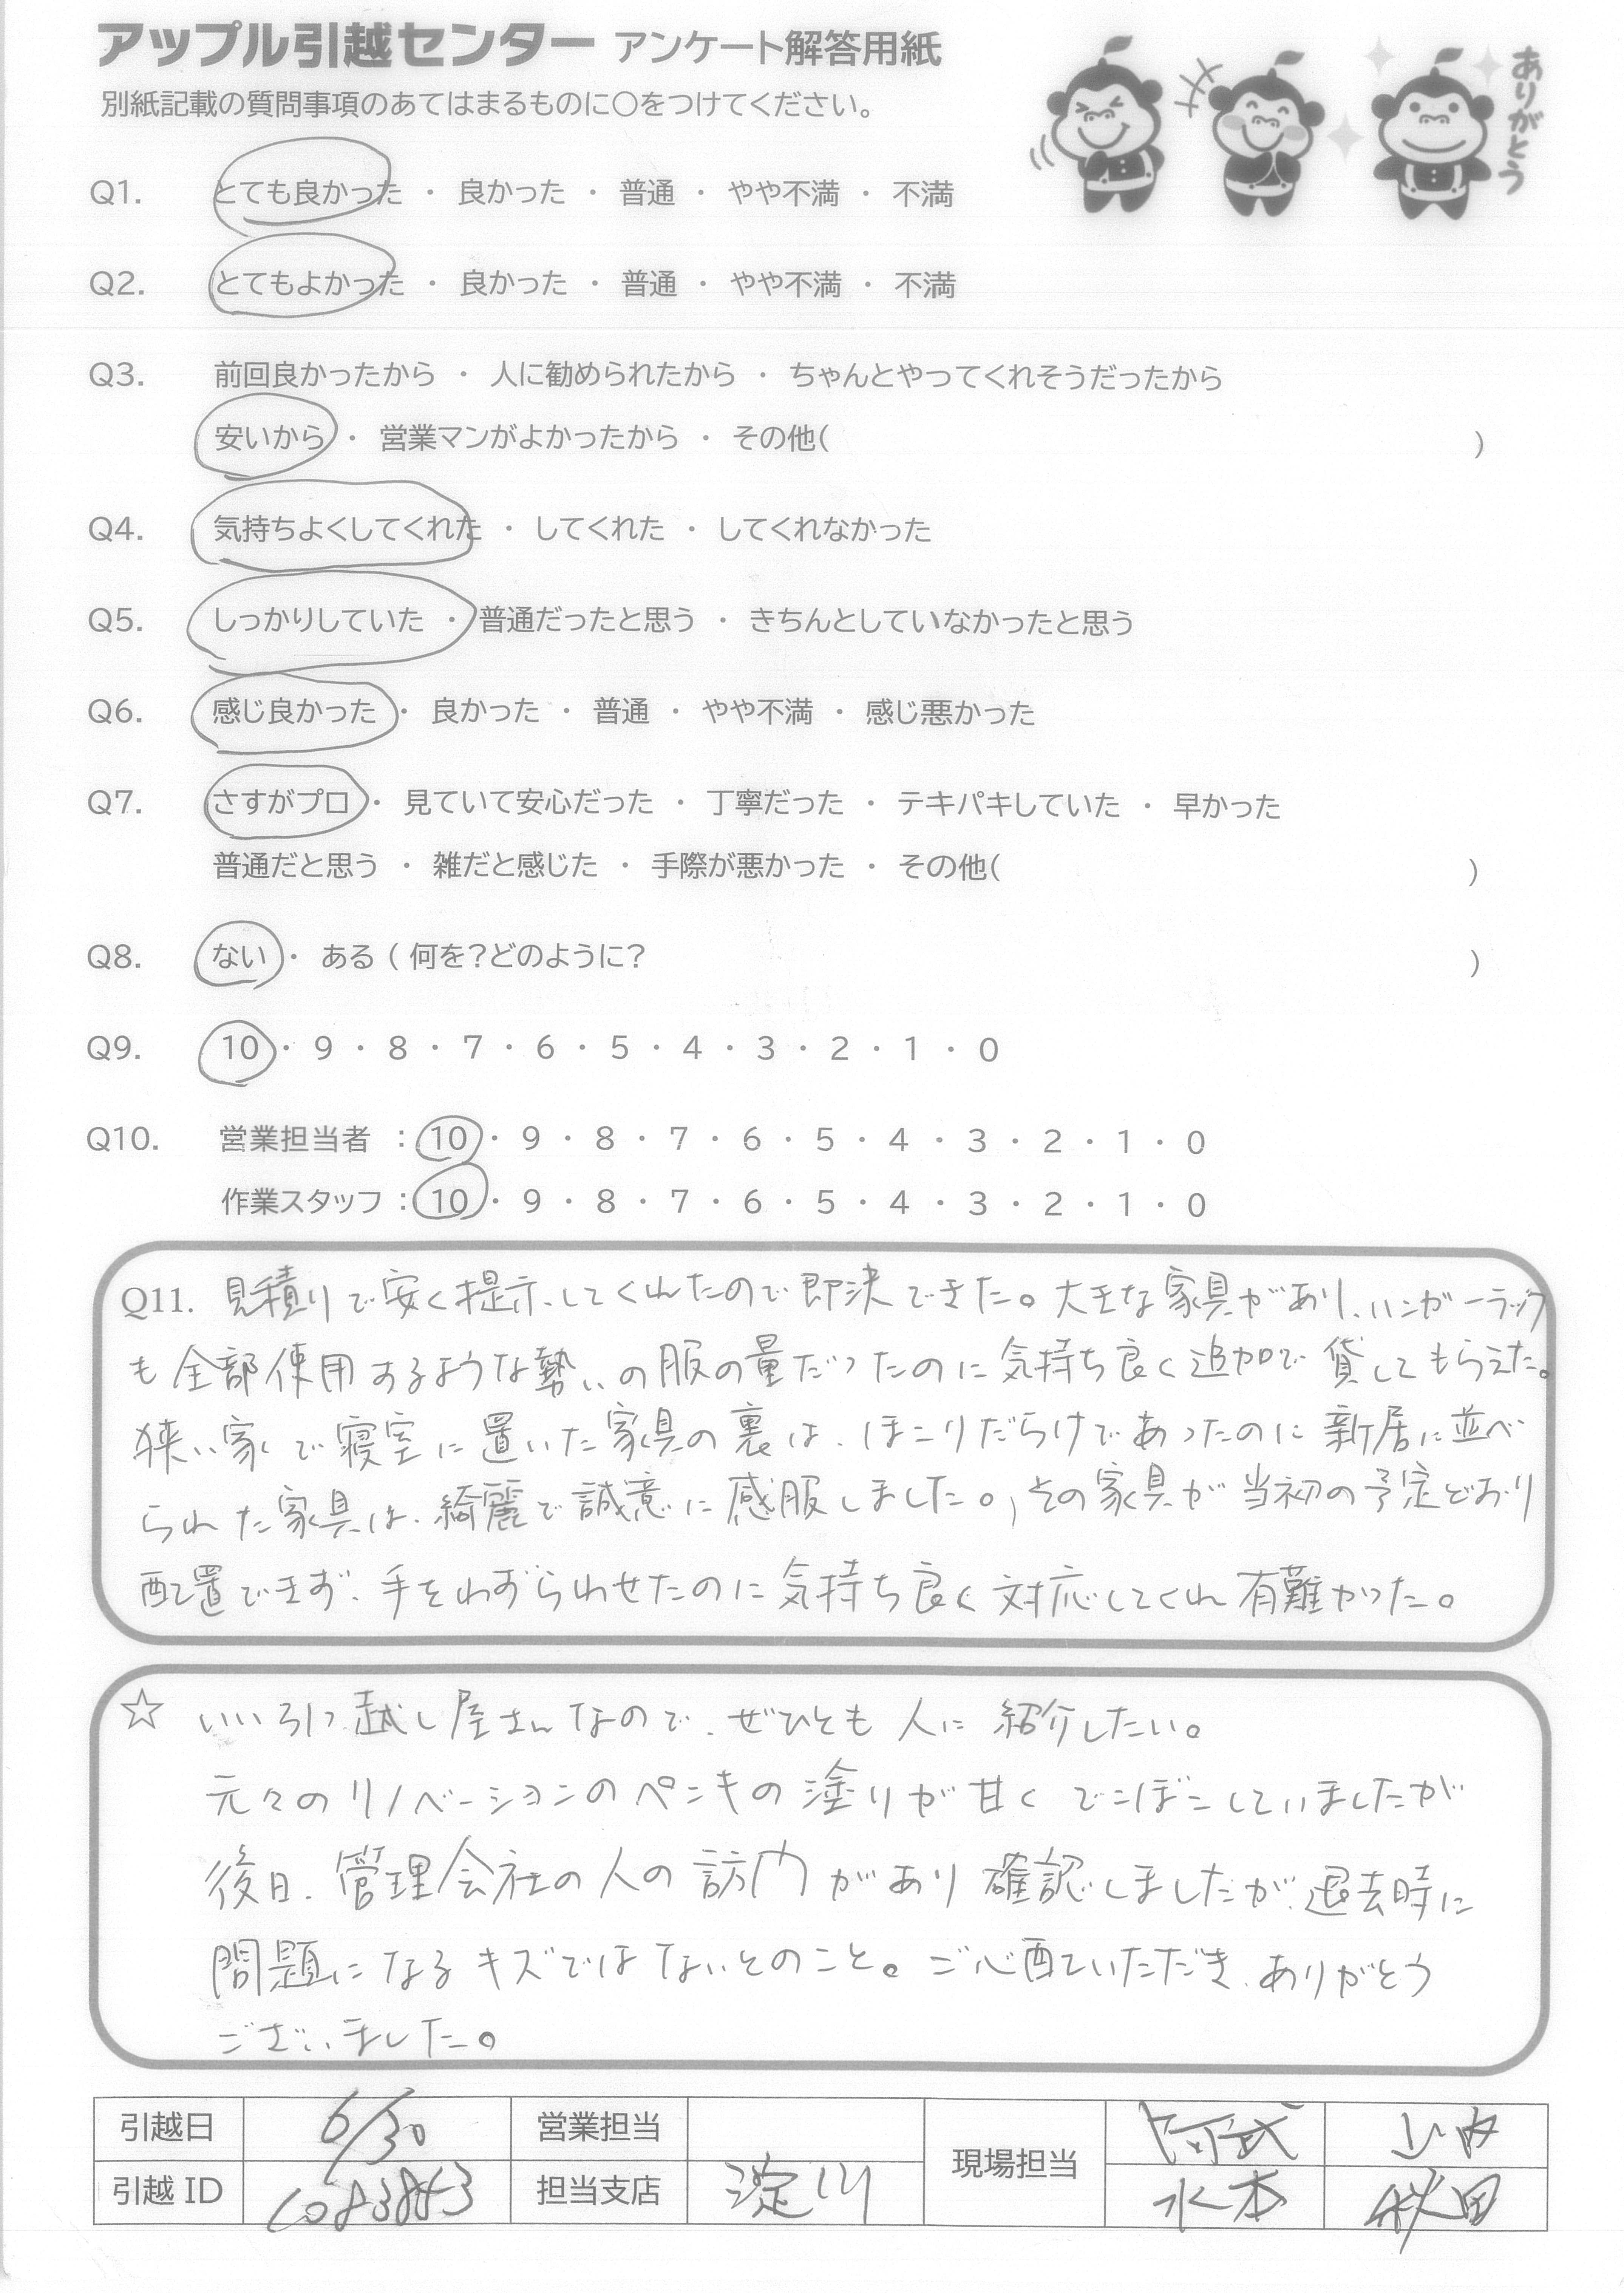 アップル引越センター アンケート解答用紙
ありがとう
別紙記載の質問事項のあてはまるものに〇をつけてください。
Q1. とても良かった ・ 良かった ・ 普通 ・ やや不満 ・ 不満
Q2. とてもよかった ・ 良かった ・ 普通 ・ やや不満 ・ 不満
Q3. 前回良かったから ・ 人に勧められたから ・ ちゃんとやってくれそうだったから
安いから ・ 営業マンがよかったから ・ その他( )
Q4. 気持ちよくしてくれた ・ してくれた ・ してくれなかった
Q5. しっかりしていた ・ 普通だったと思う ・ きちんとしていなかったと思う
Q6. 感じ良かった ・ 良かった ・ 普通 ・ やや不満 ・ 感じ悪かった
Q7. さすがプロ ・ 見ていて安心だった ・ 丁寧だった ・ テキパキしていた ・ 早かった
普通だと思う ・ 雑だと感じた ・ 手際が悪かった ・ その他( )
Q8. ない ・ ある ( 何を？どのように？ )
Q9. 10 ・ 9 ・ 8 ・ 7 ・ 6 ・ 5 ・ 4 ・ 3 ・ 2 ・ 1 ・ 0
Q10. 営業担当者 ： 10 ・ 9 ・ 8 ・ 7 ・ 6 ・ 5 ・ 4 ・ 3 ・ 2 ・ 1 ・ 0
作業スタッフ ： 10 ・ 9 ・ 8 ・ 7 ・ 6 ・ 5 ・ 4 ・ 3 ・ 2 ・ 1 ・ 0
Q11. 見積りで安く提示してくれたので即決できた。大きな家具があり、ハンガーラック
も全部使用するような勢いの服の量だったのに気持ち良く追加で貸してもらえた。
狭い家で寝室に置いた家具の裏は、ほこりだらけであったのに新居に並べ
られた家具は、綺麗で誠意に感服しました。その家具が当初の予定どおり
配置できず、手をわずらわせたのに気持ち良く対応してくれ有難かった。
☆ いい引っ越し屋さんなので、ぜひとも人に紹介したい。
元々のリノベーションのペンキの塗りが甘くでこぼこしていましたが
後日、管理会社の人の訪問があり確認しましたが、退去時に
問題になるキズではないとのこと。ご心配いただき、ありがとう
ございました。
引越日 6/30 営業担当 現場担当 阿武 山内
引越 ID 担当支店 淀川 水本 秋田